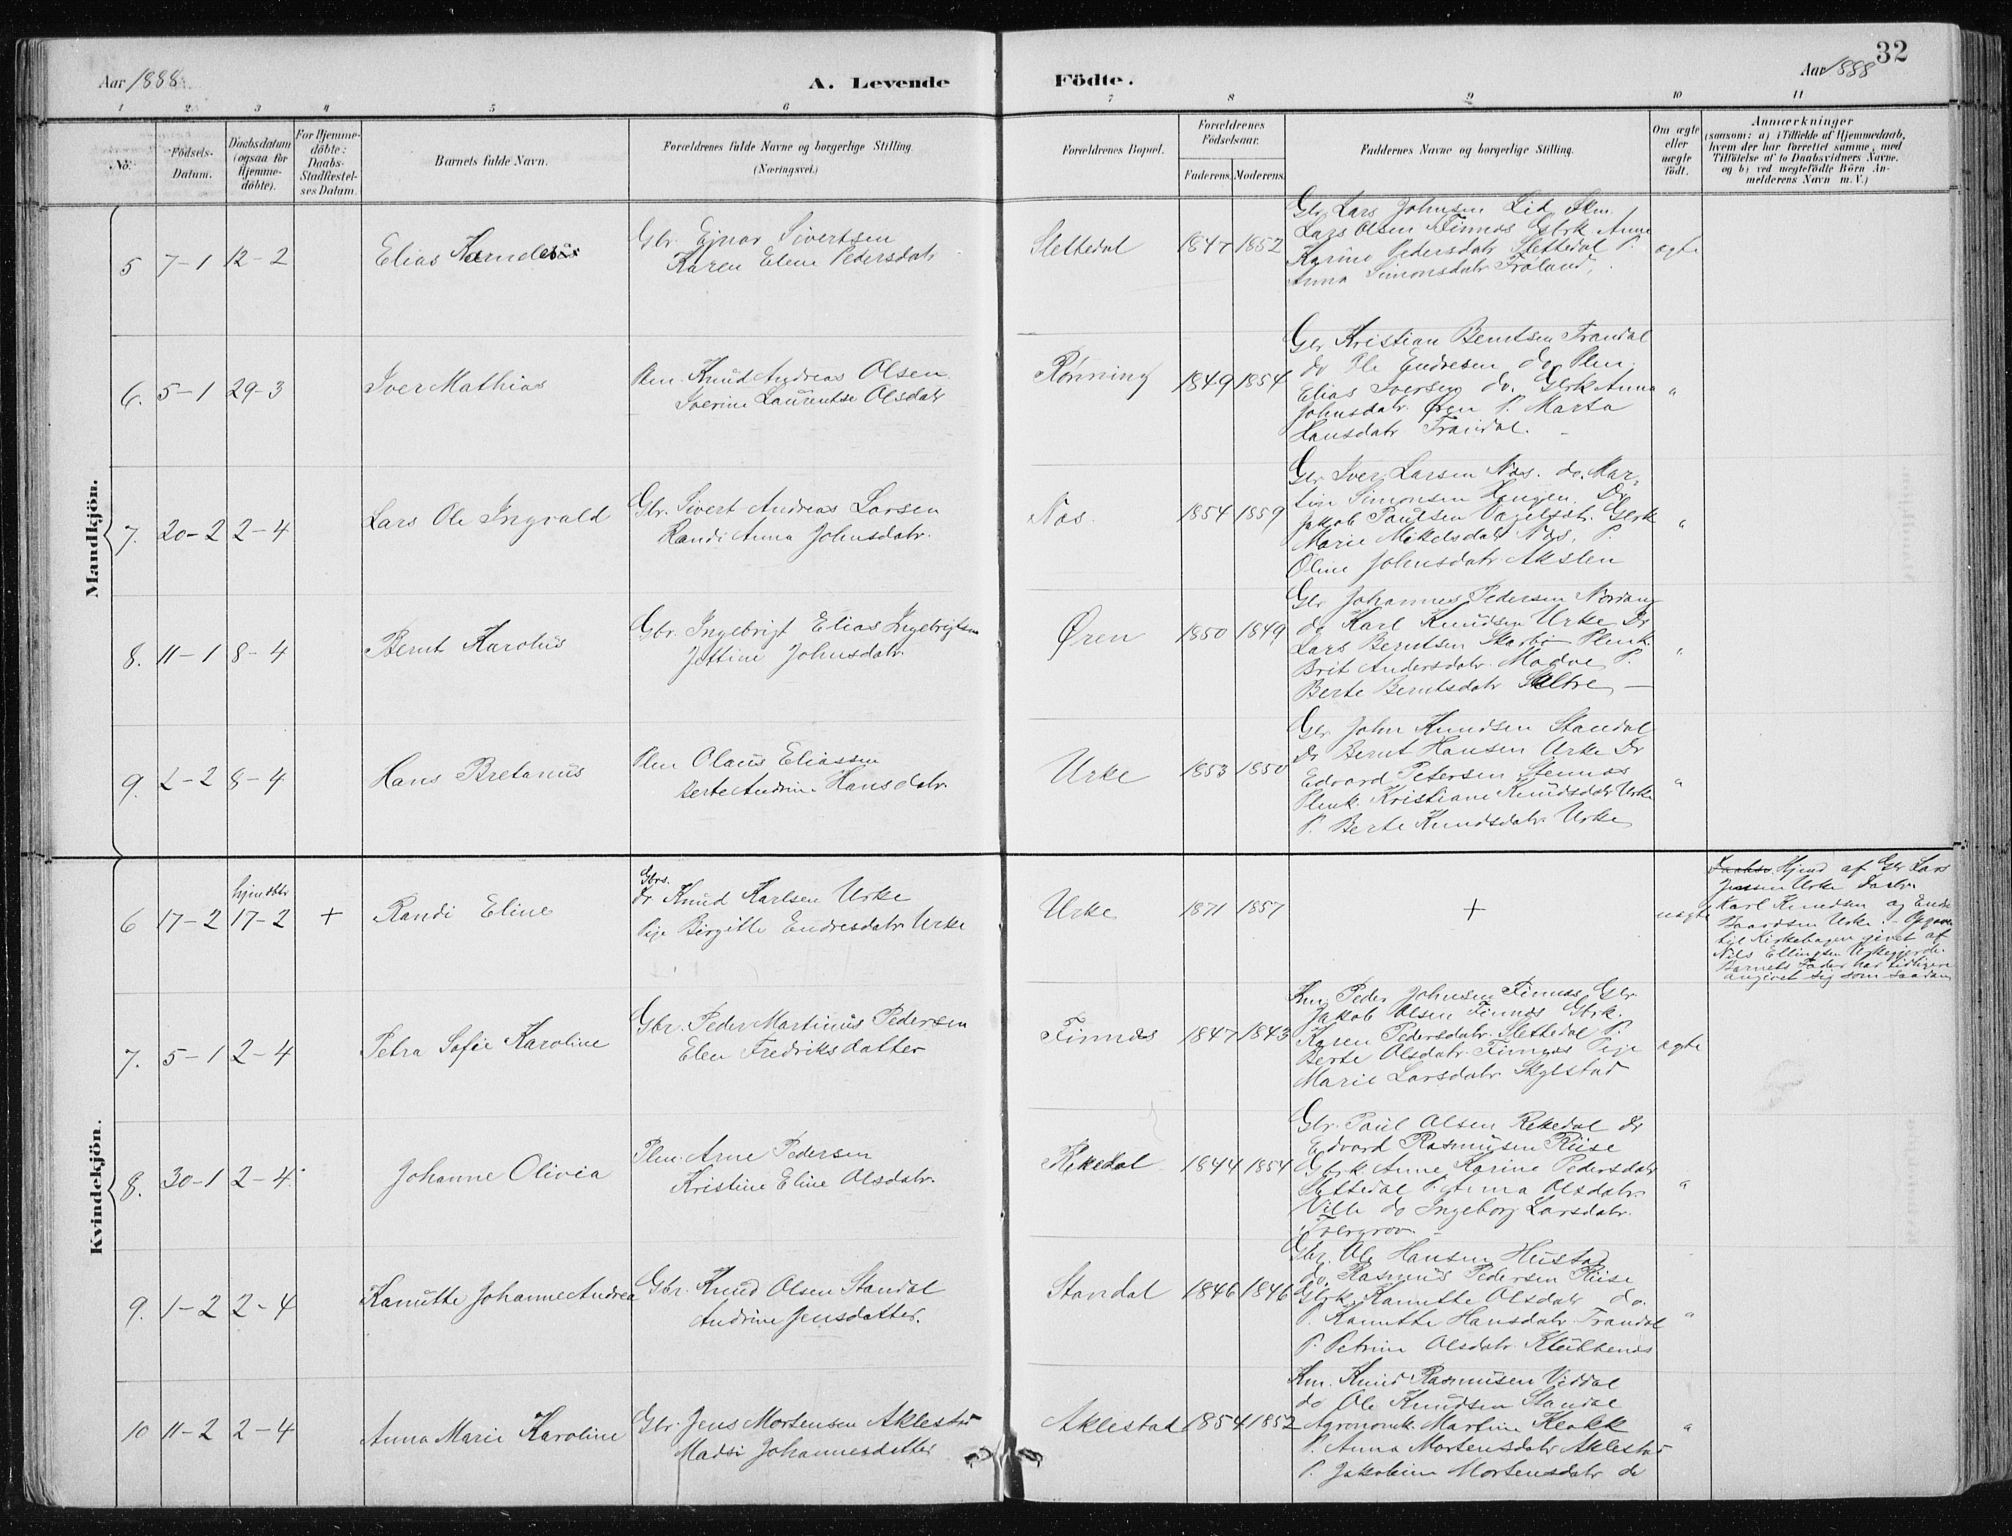 32
Aar 1888.
A. Levende
Födte.
Aar 1888
1 2 3 4 5 6 7 8 9 10 11
No.
Födsels-Datum.
Daabsdatum (ogsaa for Hjemme-döbte).
For Hjemme-döbte: Daabs-Stadfæstel-ses Datum.
Barnets fulde Navn.
Forældrenes fulde Navne og borgerlige Stilling.
(Næringsvei.)
Forældrenes Bopæl.
Forældrenes Födselsaar.
Faderens. Moderens.
Faddernes Navne og borgerlige Stilling.
Om ægte eller uægte födt.
Anmærkninger
(saasom: a) i Tilfælde af Hjemmedaab,
hvem der har forrettet samme, med
Tilföielse af to Daabsvidners Navne.
og b) ved uægtefödte Börn An-
melderens Navn m. V.)
Mandkjön.
5 7-1 12-2 Elias
Gbr. Ejnar Sivertsen
Karen Elene Pedersdatr
Slettedal 1847 1852
Gbr. Lars Johnsen Lid
Lars Olsen Finnes Gbrk Anne
Karine Pedersdatr Slettedal P.
Anna Simonsdatr Frøland.
ægte
6. 5-1 29-3 Iver Mathias
Plm. Knud Andreas Olsen
Iverine Laurentse Olsdatr
Rønning 1849 1854
Gbr Kristian Berntsen Trandal
do Ole Endresen do. Plm.
Elias Iversen do. Gbrk Anna
Johnsdatr. Øren P. Marta
Hansdatr Trandal.
"
7. 20-2 2-4 Lars Ole Ingvald
Gbr. Sivert Andreas Larsen
Randi Anna Johnsdatr.
Nes. 1854 1859
Gbr. Iver Larsen Nes. do. Mar-
tin Simonsen Dr
Jakob Paulsen Gbrk
Marie Mikelsdatr Nes. P.
Oline Johnsdatr Akslen
"
8. 11-1 8-4 Bernt Karolus
Gbr. Ingebrigt Elias Ingebrigtsen
Jettine Johnsdatr.
Øren 1850 1849
Gbr Johannes Pedersen Norang
do Karl Knudsen Urke Dr
Lars Berntsen Skarbø Plmk.
Brit Andersdatr. P.
Berte Berntsdatr
"
9. 2-2 8-4 Hans Bretanus
Plm Olaus Eliassen
Berte Andrine Hansdatr.
Urke 1853 1850
Gbr. John Knudsen Standal
Dr Bernt Hansen Urke Dr
Edvard Petersen Stennes
Plmk. Kristiane Knudsdatr Urke
P. Berte Knudsdatr Urke
"
Kvindekjön.
6 17-2 hjmdbt 17-2 + Randi Eline
Gbrs. Dr Knud Karlsen Urke
Pige Birgitte Endresdatr Urke
Urke 1871 1857
+
uægte
Hjmd af Gbr Lars
Jenssen Urke
Karl Knudsen og Ende
Baardsen Urke.
til Kirkebogen givet af
Nils Ellingsen Urkegjerde.
Barnets Fader har tidligere
angivet sig som saadan
7. 5-1 2-4 Petra Sofie Karoline
Gbr. Peder Martinus Pedersen
Elen Fredriksdatter
Finnes 1847 1843
Km. Peder Johnsen Finnes Gbr.
Jakob Olsen Finnes Gbrk.
Karen Pedersdatr. Slettedal P.
Berte Olsdatr. Finnes Pige
Marie Larsdatr. Skylstad
ægte
8. 30-1 2-4 Johanne Olivia
Plm. Arne Pedersen
Kristine Eline Olsdatr.
Rekedal 1844 1854
Gbr. Paul Olsen Rekedal Dr
Edvard Rasmusen Riise
Gbrk Anne Karine Pedersdatr
Slettedal P. Anna Olsdatr.
Ville do Ingeborg Larsdatr.
"
9. 1-2 2-4 Kanutte Johanne Andrea
Gbr. Knud Olsen Standal
Andrine Jensdatter.
Standal 1846 1846
Gbr. Ole Hansen Hustad
do. Rasmus Pedersen Riise
Gbrk. Kanutte Olsdatr do.
P. Kanutte Hansdatr Trandal
P. Petrine Olsdatr
"
10 11-2 2-4 Anna Marie Karoline
Gbr. Jens Mortensen Aklestad
Madsi Johannesdatter
Aklestad 1854 1852
Km. Knud Rasmusen Viddal
do Ole Knudsen Standal
Agronomk. Martine Klokk
P. Anna Mortensdatr Aklestad
P. Jakobine Mortensdatr do
"